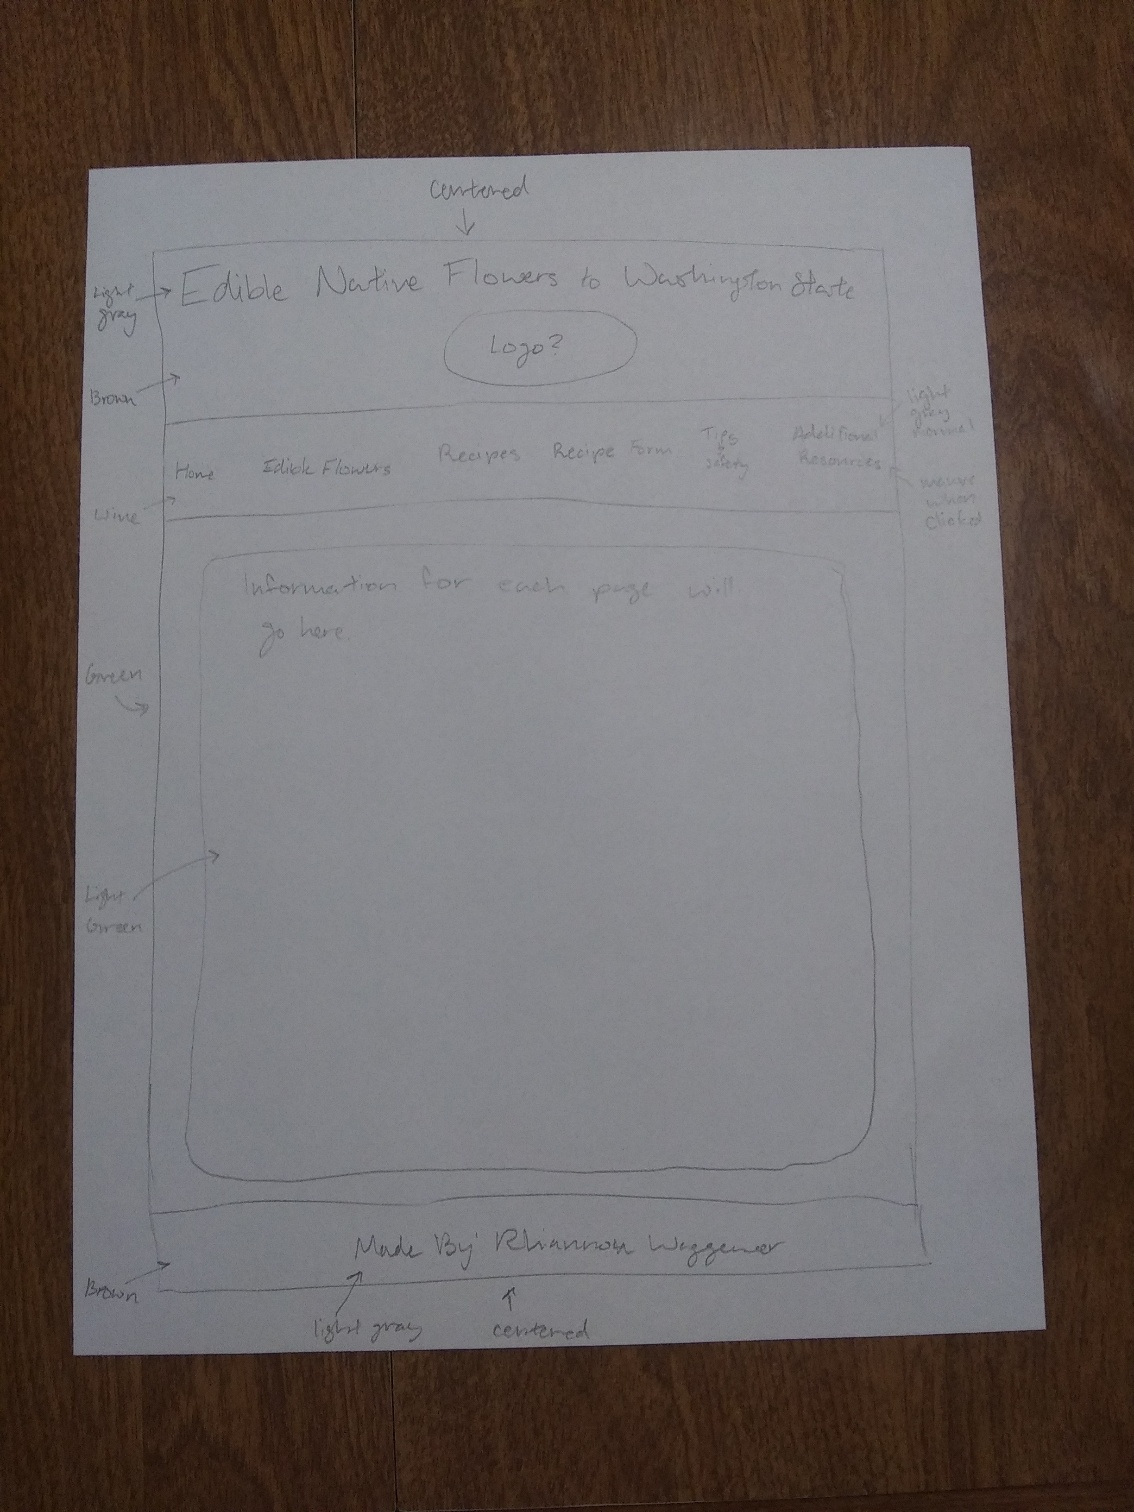 centered
Light
gray
Edible Native Flowers to Washington State
Logo?
Brown
light
gray
normal
Home Edible Flowers Recipes Recipe Form Tips & Safety Additional Resources
Wine
mauve
when
clicked
Information for each page will
go here
Green
Light
Green
Made By: Rhiannon Waggener
Brown
light gray
centered